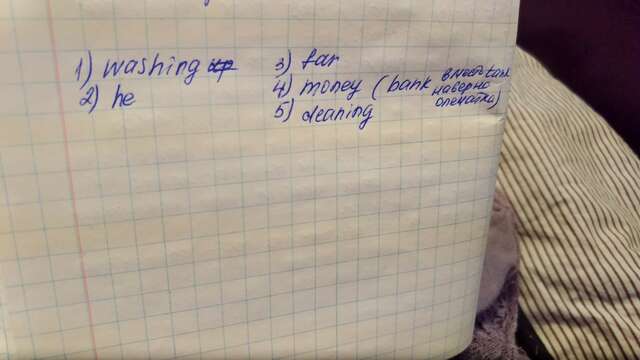 1) washing
2) he
3) far
4) money (bank вместо tank наверно опечатка)
5) cleaning